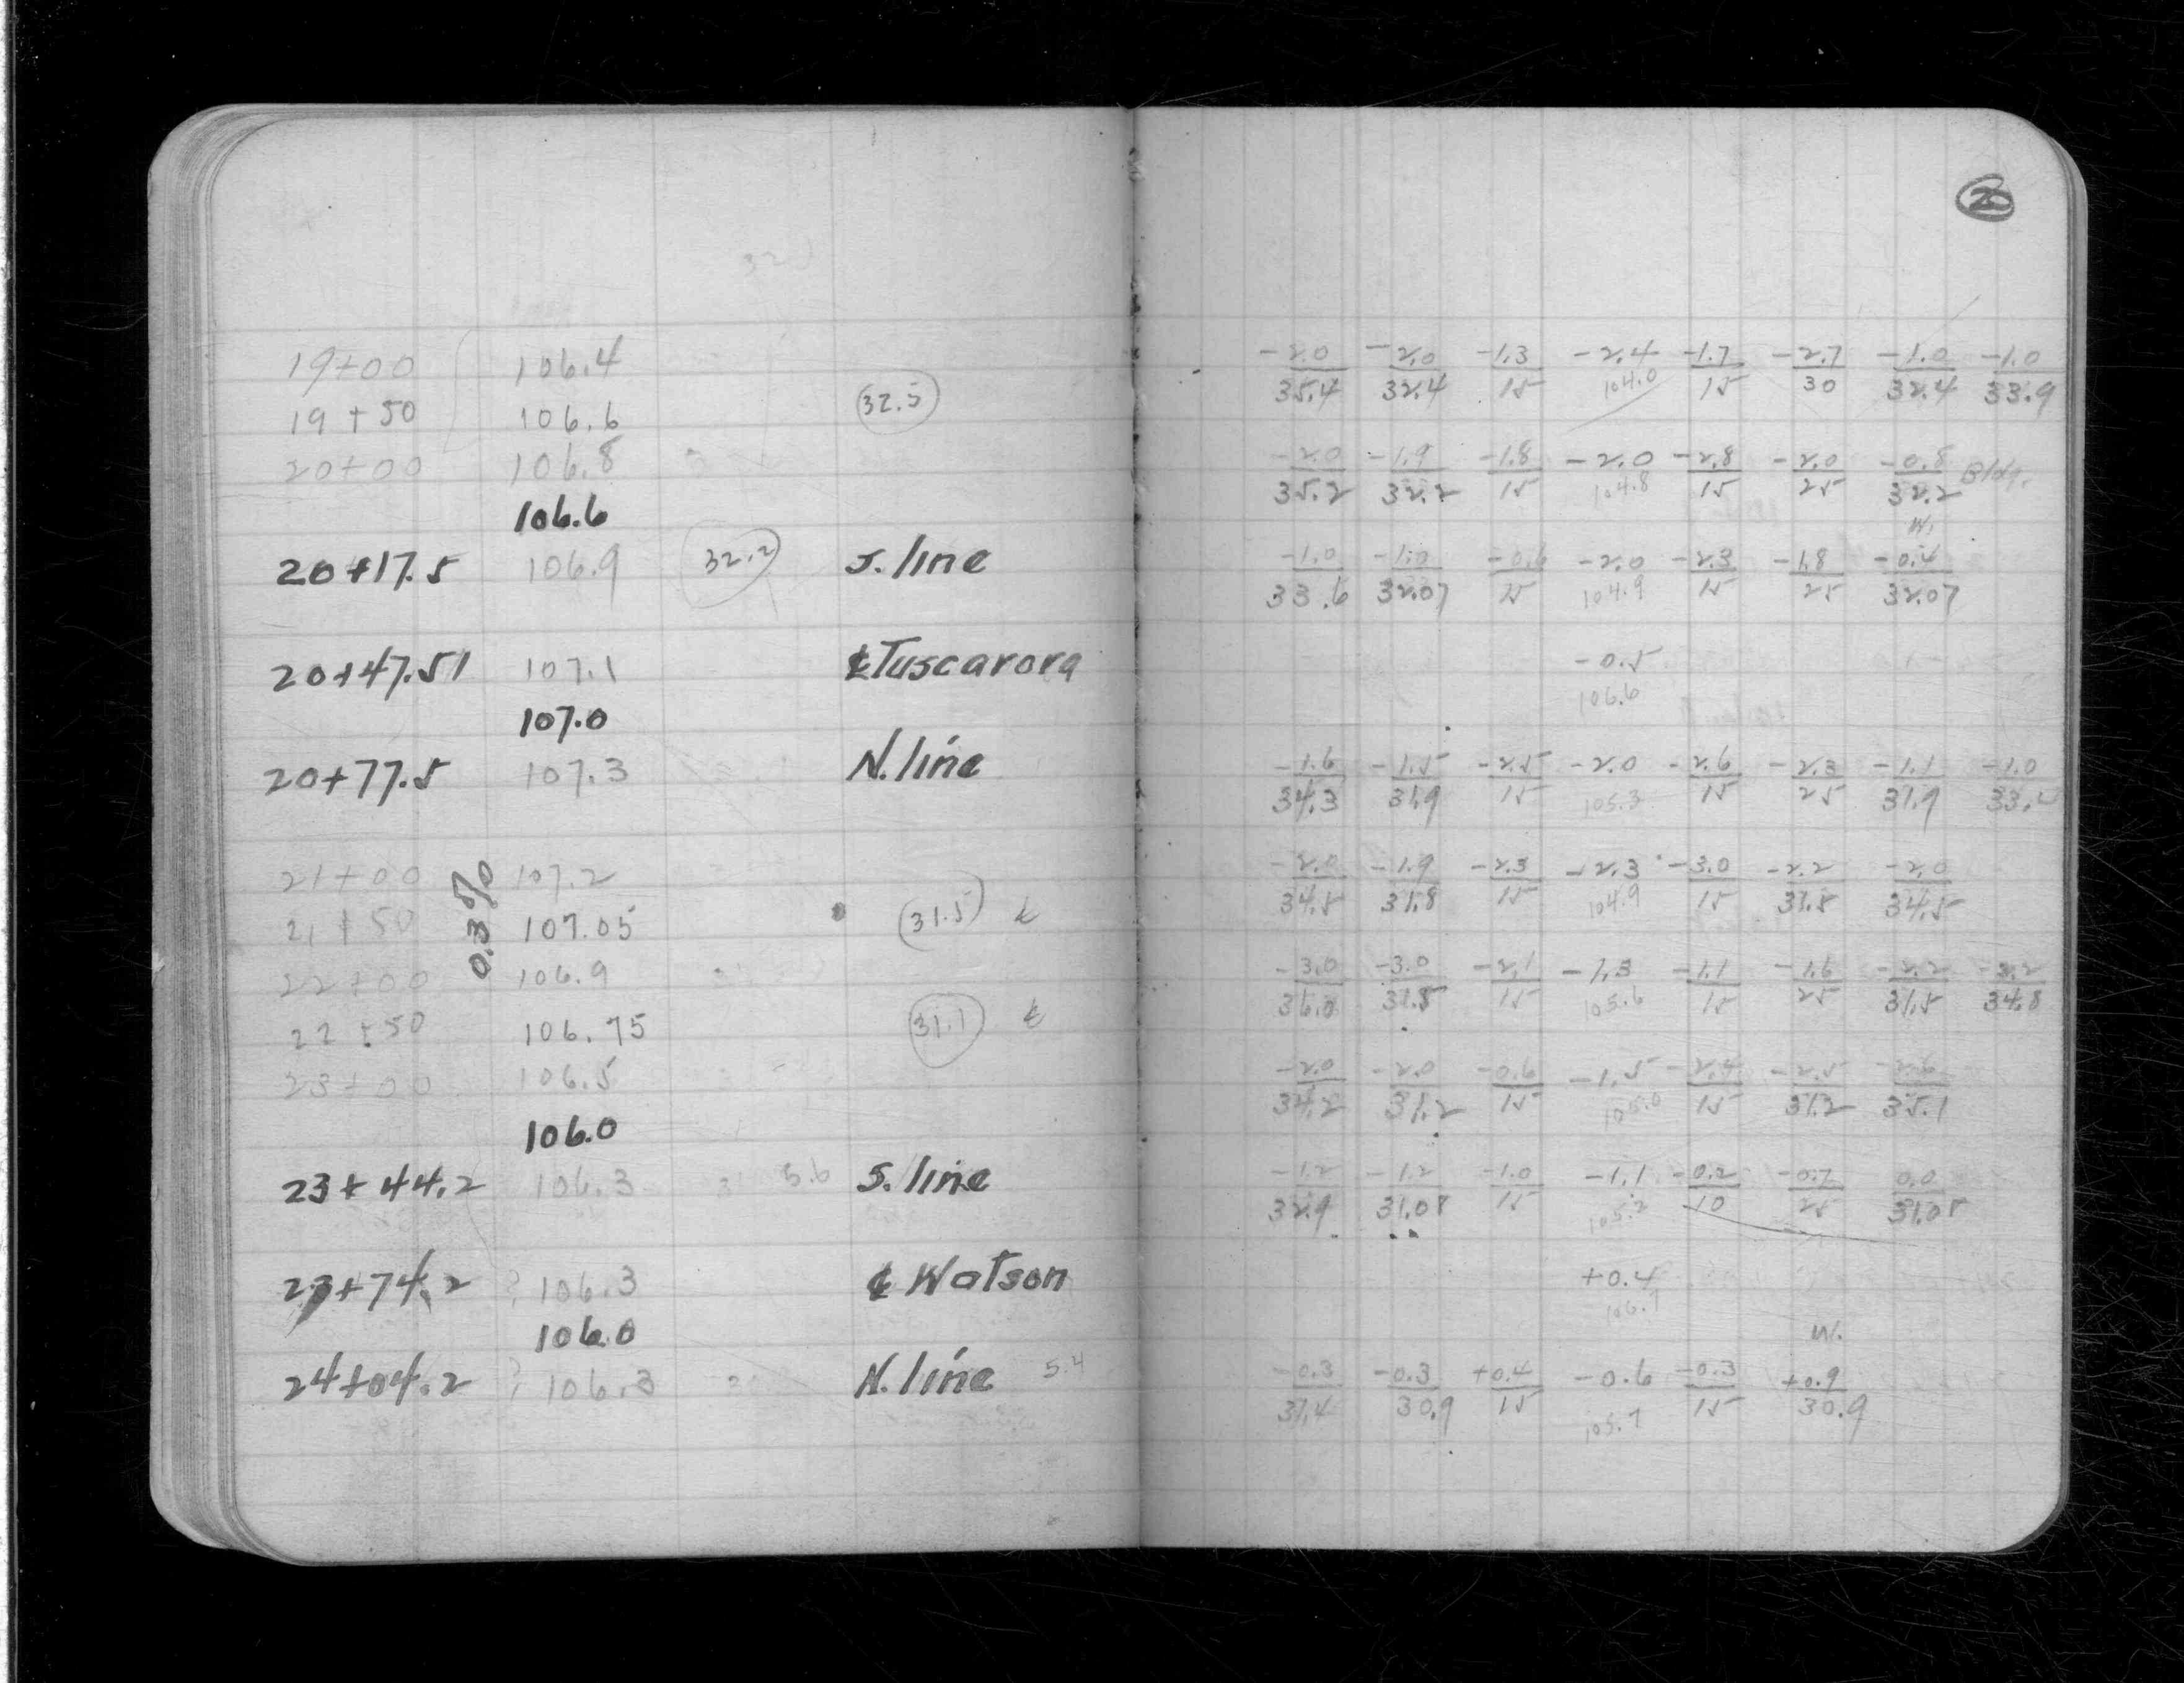 20
19+00 106.4
19+50 106.6 32.5
20+00 106.8
106.6
20+17.5 106.9 32.2 S. line
20+47.51 107.1 ℄ Tuscarora
107.0
20+77.5 107.3 N. line
21+00 107.2
0.3%
21+50 107.05 31.5 ℄
22+00 106.9
22+50 106.75 31.1 ℄
23+00 106.5
106.0
23+44.2 106.3 5.6 S. line
23+74.2 ? 106.3 ℄ Watson
106.0
24+04.2 ? 106.3 N. line 5.4
-2.0 -2.0 -1.3 -2.4 -1.7 -2.7 -1.0 -1.0
35.4 32.4 15 104.0 15 30 32.4 33.9
-2.0 -1.9 -1.8 -2.0 -2.8 -2.0 -0.8 Bldg.
35.2 32.2 15 104.8 15 25 32.2
W.
-1.0 -1.0 -0.6 -2.0 -2.3 -1.8 -0.4
33.6 32.07 15 104.9 15 25 32.07
-0.5
106.6
-1.6 -1.5 -2.5 -2.0 -2.6 -2.3 -1.1 -1.0
34.3 31.9 15 105.3 15 25 31.9
-2.0 -1.9 -2.3 -2.3 -3.0 -2.2 -2.0
34.5 31.8 15 104.9 15 31.8 34.5
-3.0 -3.0 -2.1 -1.3 -1.1 -1.6 -2.2 -2.2
36.0 31.5 15 105.6 15 25 31.5 34.8
-2.0 -2.0 -0.6 -1.5 -2.4 -2.5 -2.6
34.2 31.2 15 105.0 15 31.2 35.1
-1.2 -1.2 -1.0 -1.1 -0.2 -0.7 0.0
32.9 31.08 15 105.2 10 25 31.08
+0.4
106.7
W.
-0.3 -0.3 +0.4 -0.6 -0.3 +0.9
31.4 30.9 15 105.7 15 30.9